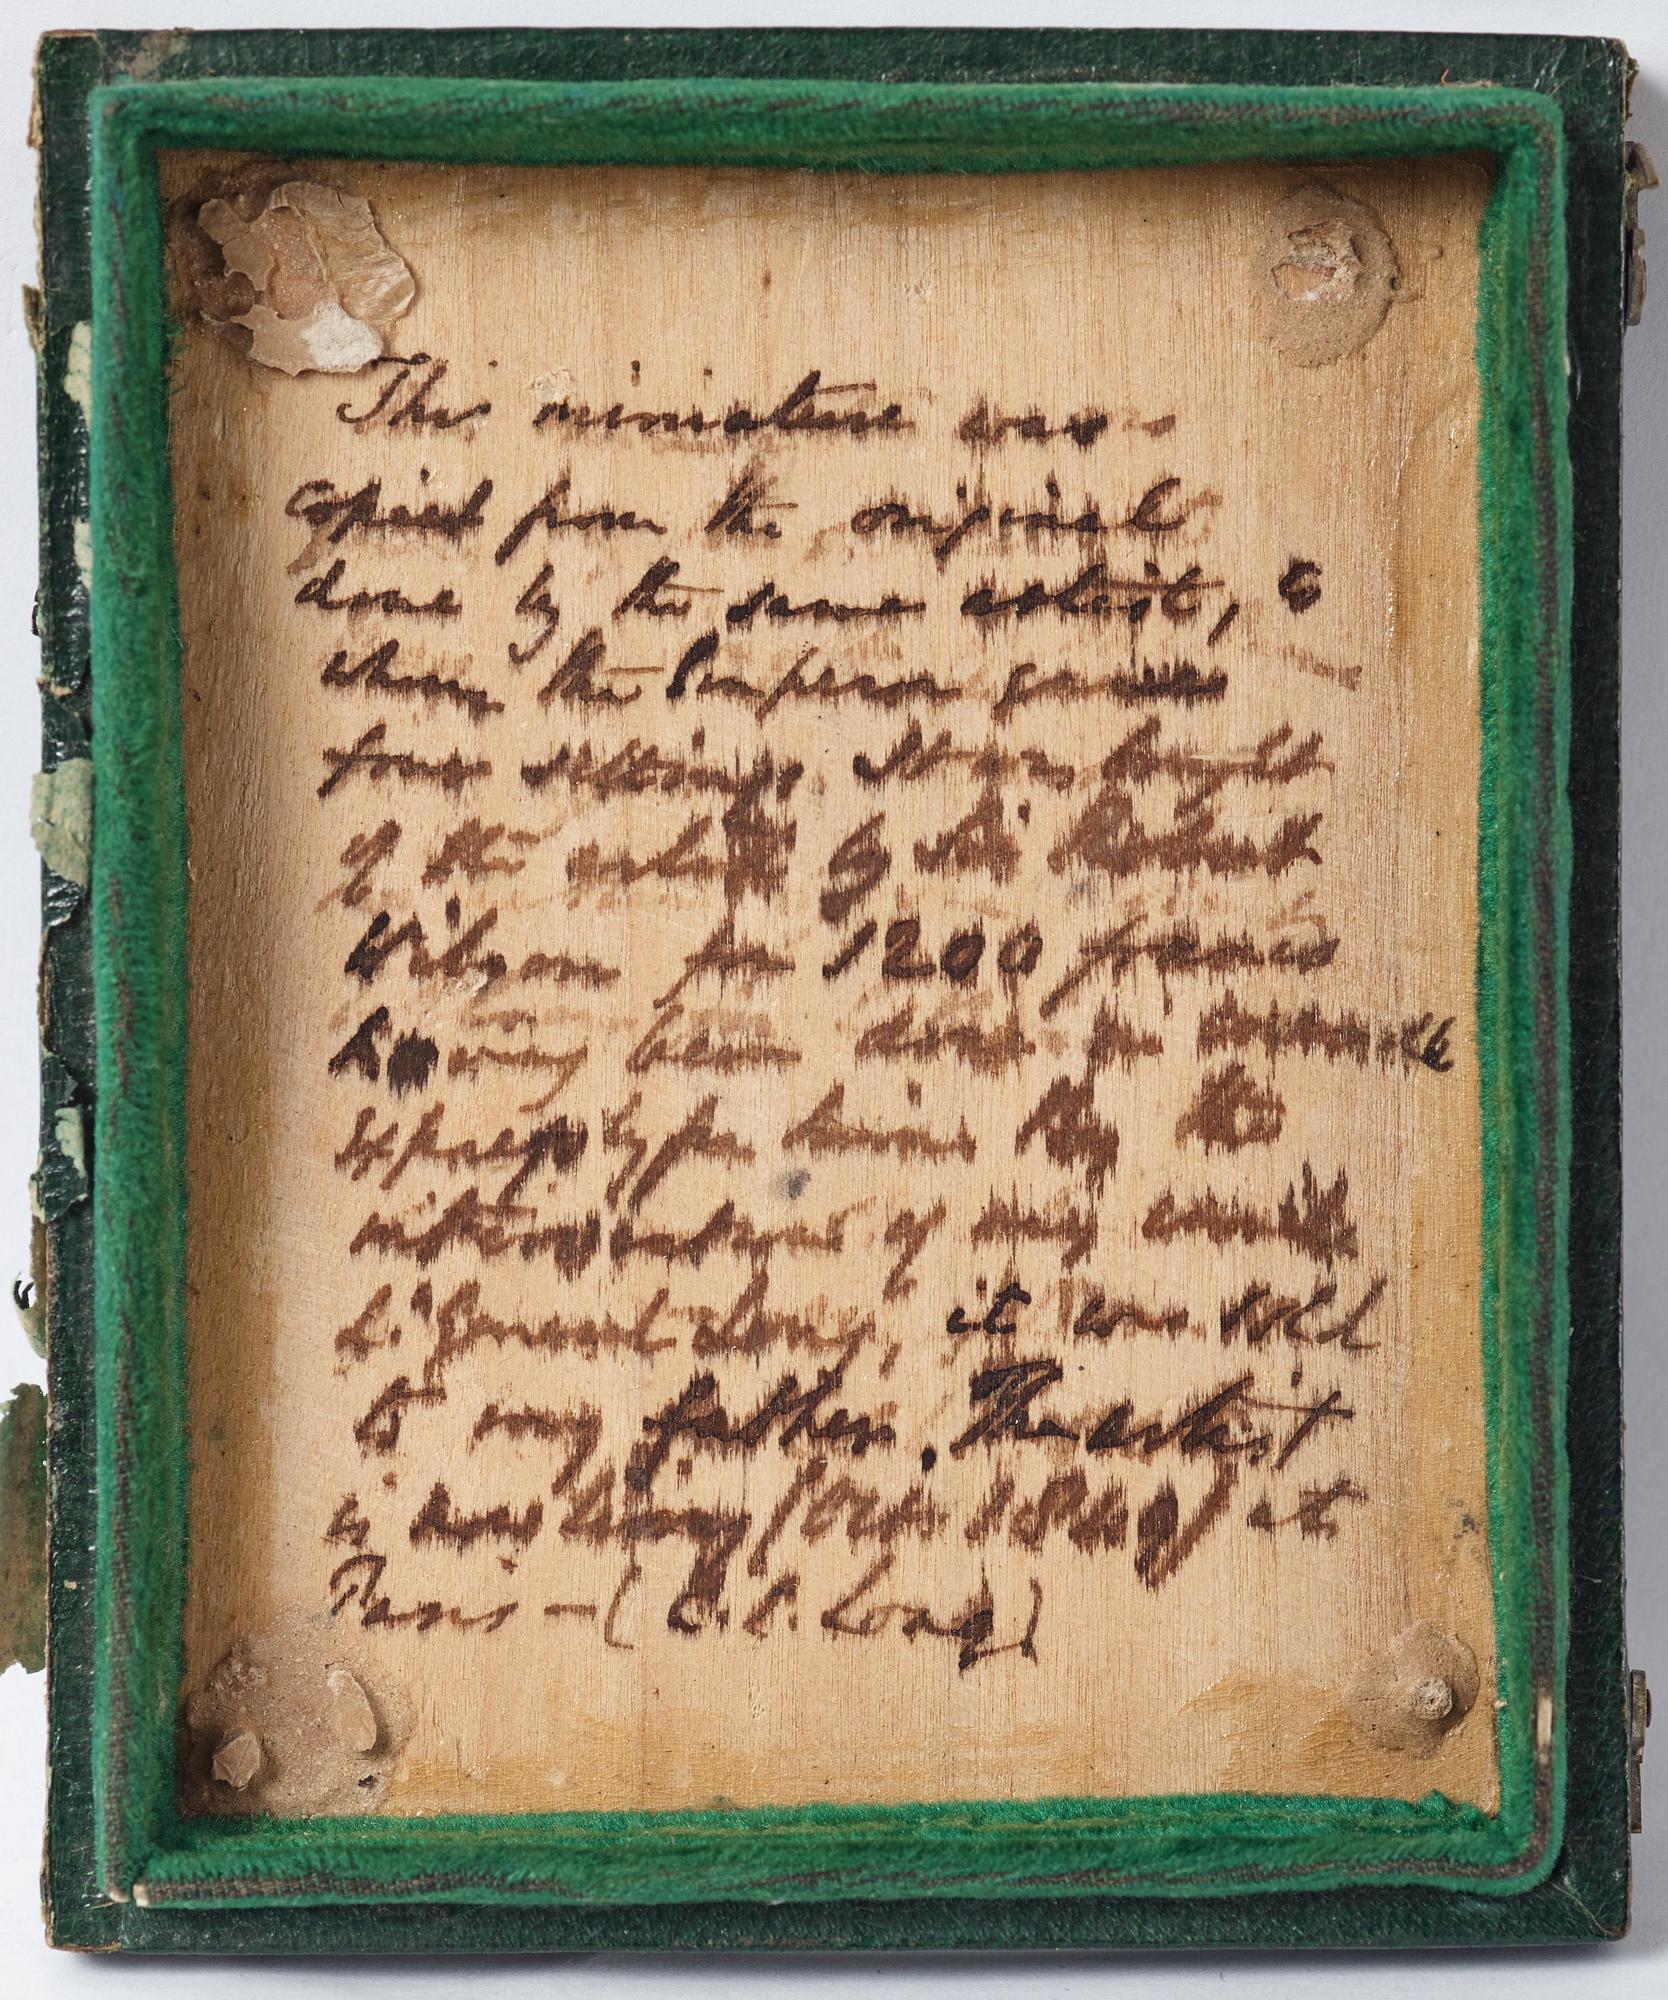 This miniature was
copied from the original
done by the same artist, to
whom the Emperor gave
four sittings It was bought
of the artist by Sir Robert
Wilson for 1200 francs
having been done
expressly for him. By the
of my uncle
L. General Long, it was sold
to my father. The artist
is now living (Oct. 1849) at
Paris — ( C. E. Long)